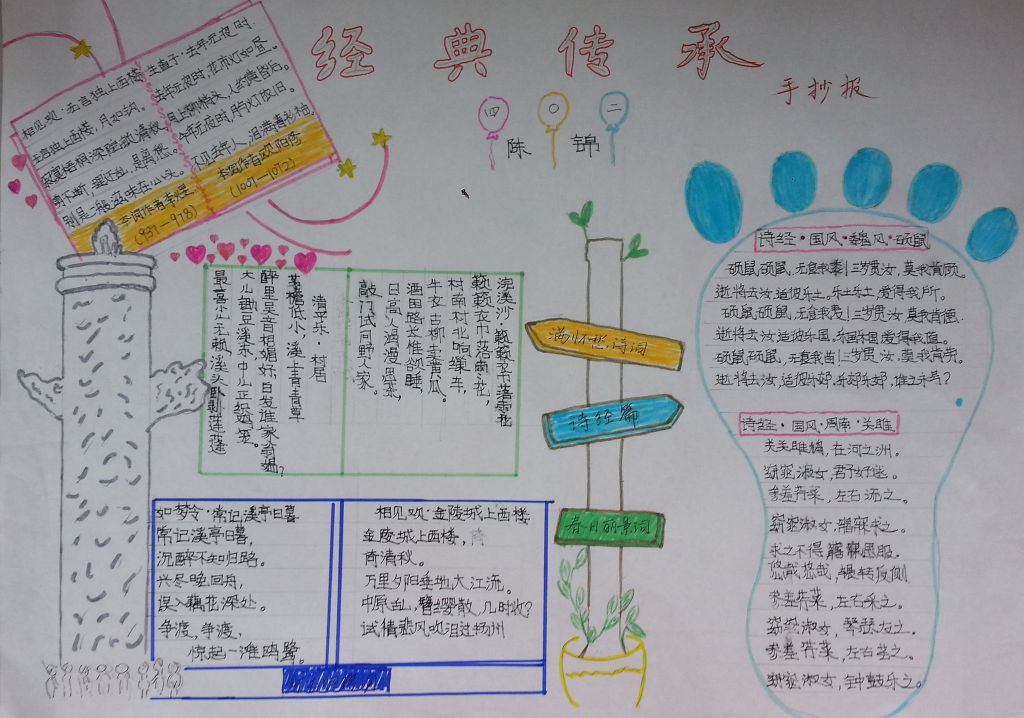 经典传承
手抄报
四〇二
陈锦
相见欢·无言独上西楼
无言独上西楼，月如钩。
寂寞梧桐深院锁清秋。
剪不断，理还乱，是离愁。
别是一般滋味在心头。
李词作者李煜
(937-978)
生查子·去年元夜时
去年元夜时，花市灯如昼。
月上柳梢头，人约黄昏后。
今年元夜时，月与灯依旧。
不见去年人，泪满春衫袖。
本词作者欧阳修
(1007-1072)
浣溪沙·簌簌衣巾落枣花
簌簌衣巾落枣花，
村南村北响缫车，
牛衣古柳卖黄瓜。
酒困路长惟欲睡，
日高人渴漫思茶，
敲门试问野人家。
清平乐·村居
茅檐低小，溪上青青草
醉里吴音相媚好，白发谁家翁媪？
大儿锄豆溪东，中儿正织鸡笼。
最喜小儿无赖，溪头卧剥莲蓬
满怀愁诗词
诗经篇
春日丽景词
如梦令·常记溪亭日暮
常记溪亭日暮，
沉醉不知归路。
兴尽晚回舟，
误入藕花深处。
争渡，争渡，
惊起一滩鸥鹭。
相见欢·金陵城上西楼
金陵城上西楼，
倚清秋。
万里夕阳垂地大江流。
中原乱，簪缨散，几时收？
试倩悲风吹泪过扬州
诗经·国风·魏风·硕鼠
硕鼠硕鼠，无食我黍！三岁贯汝，莫我肯顾。
逝将去汝，适彼乐土。乐土乐土，爰得我所。
硕鼠硕鼠，无食我麦！三岁贯汝，莫我肯德。
逝将去汝，适彼乐国。乐国乐国爰得我直。
硕鼠硕鼠，无食我苗！三岁贯汝，莫我肯劳。
逝将去汝，适彼乐郊，乐郊乐郊，谁之永号？
诗经·国风·周南·关雎
关关雎鸠，在河之洲。
窈窕淑女，君子好逑。
参差荇菜，左右流之。
窈窕淑女，寤寐求之。
求之不得，寤寐思服。
悠哉悠哉，辗转反侧
参差荇菜，左右采之。
窈窕淑女，琴瑟友之。
参差荇菜，左右芼之。
窈窕淑女，钟鼓乐之。